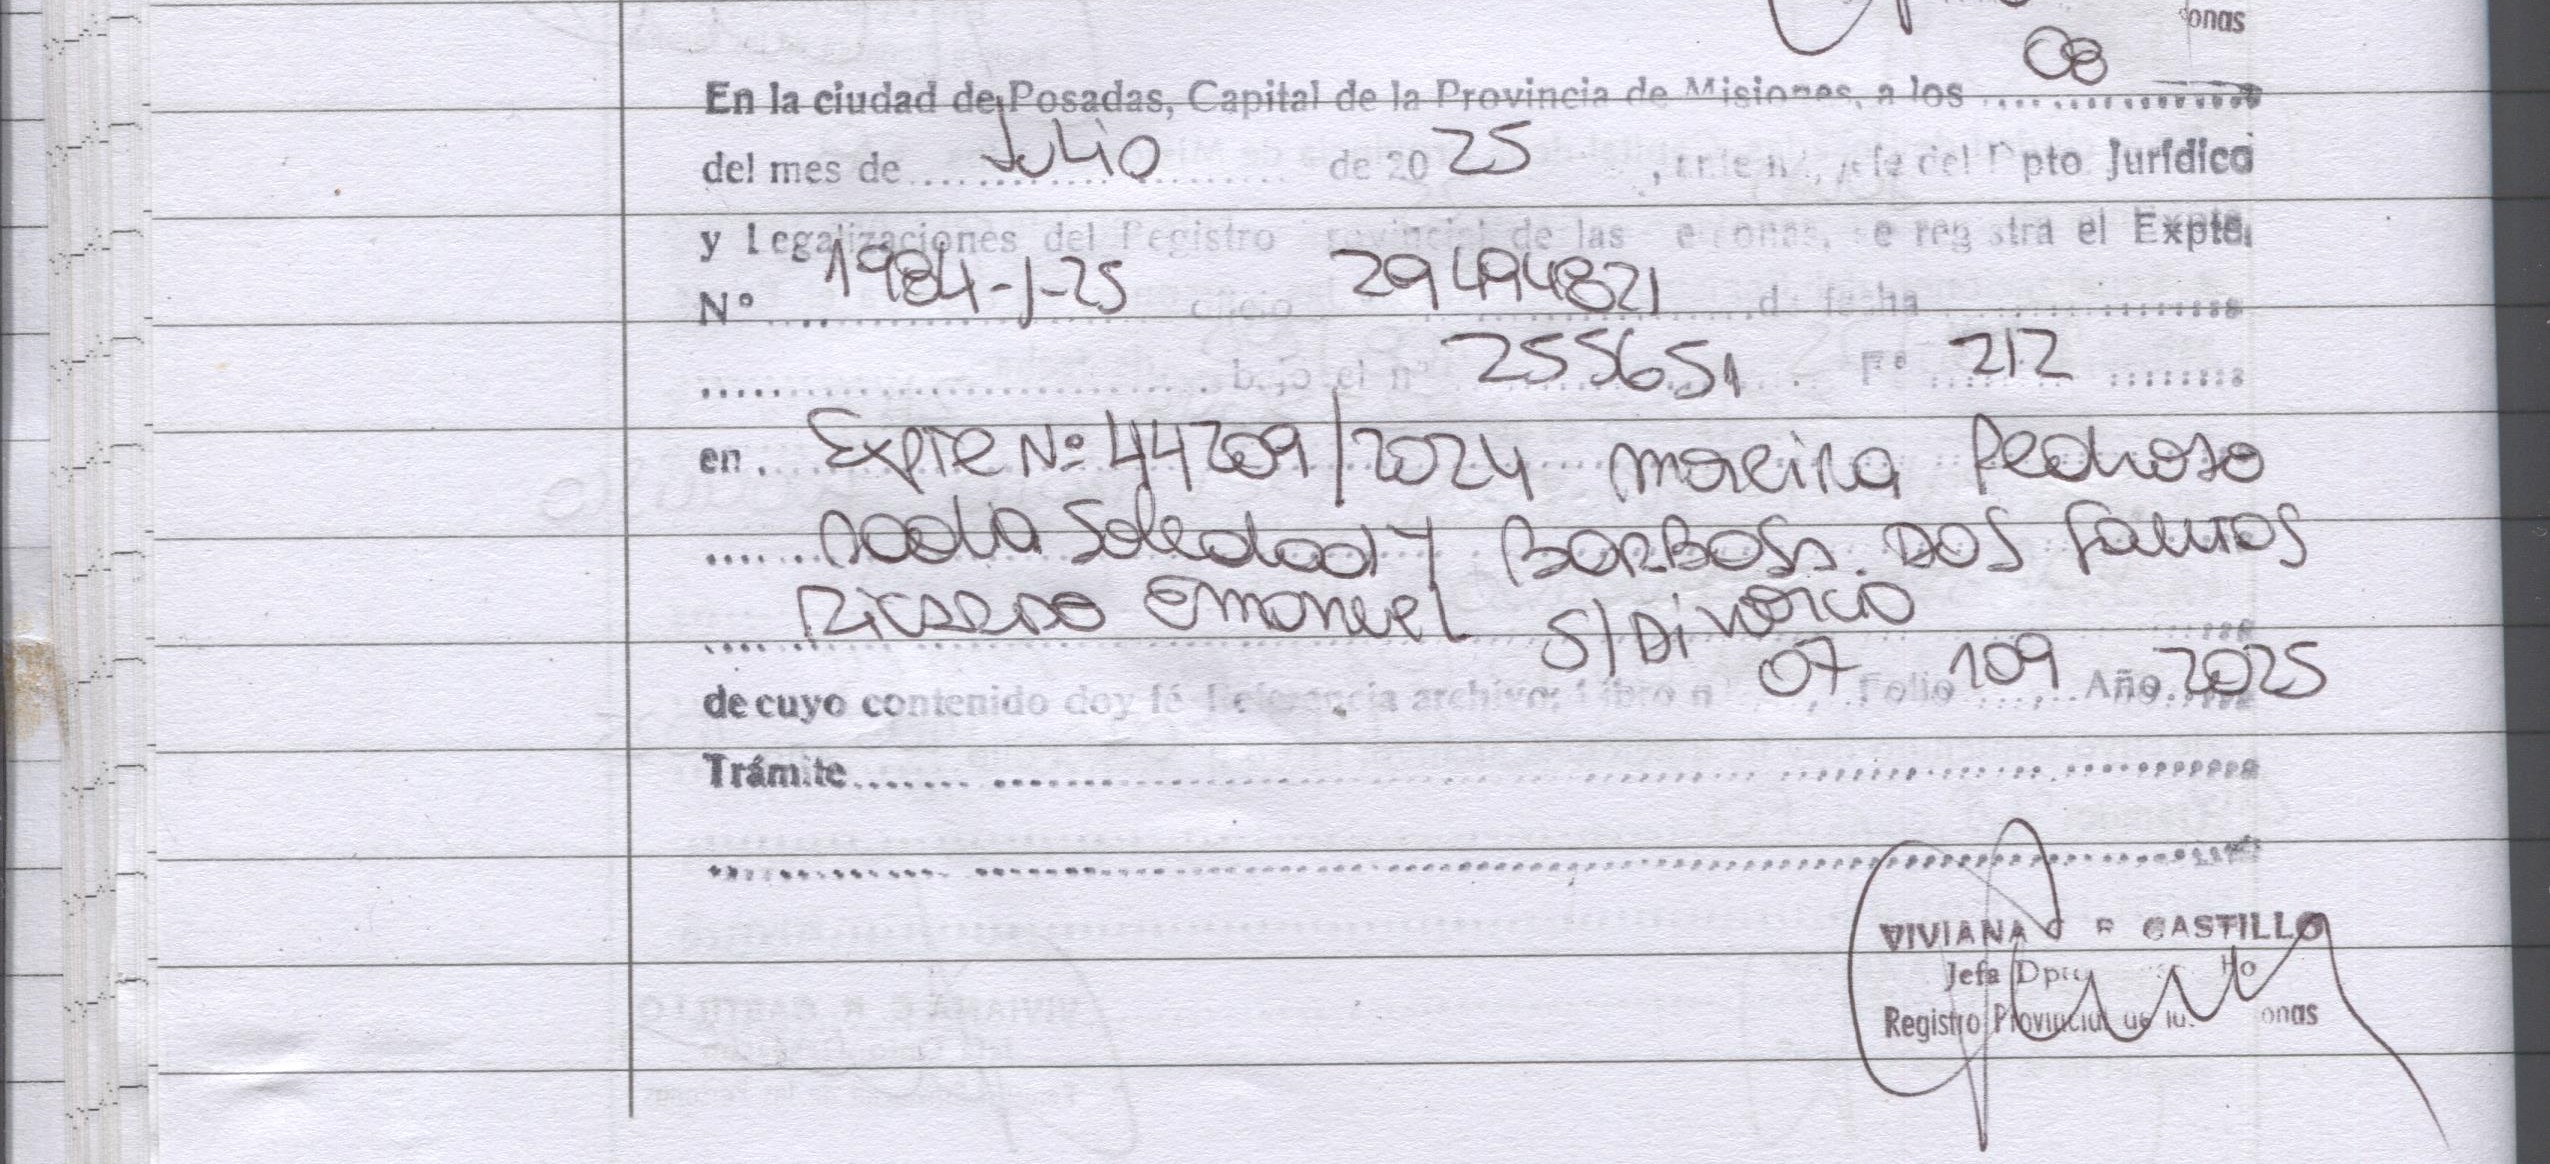 onas
En la ciudad de Posadas, Capital de la Provincia de Misiones, a los 08
del mes de Julio de 20 25, ante mí, Jefe del Dpto Jurídico
y Legalizaciones del Registro Provincial de las Personas, se registra el Expte.
Nº 1984-J-25 oficio 29494821 de fecha
bajo el nº 255651 Fº 212
en Expte Nº 44209/2024 Moreira Pedroso
Nadia Soledad Y Barbosa Dos Santos
Ricardo Emanuel S/Divorcio
de cuyo contenido doy fé Referencia archivo: Libro nº 07, Folio 109, Año 2025
Trámite
VIVIANA C R CASTILLO
Jefa Dpto
Registro Provincial de las onas